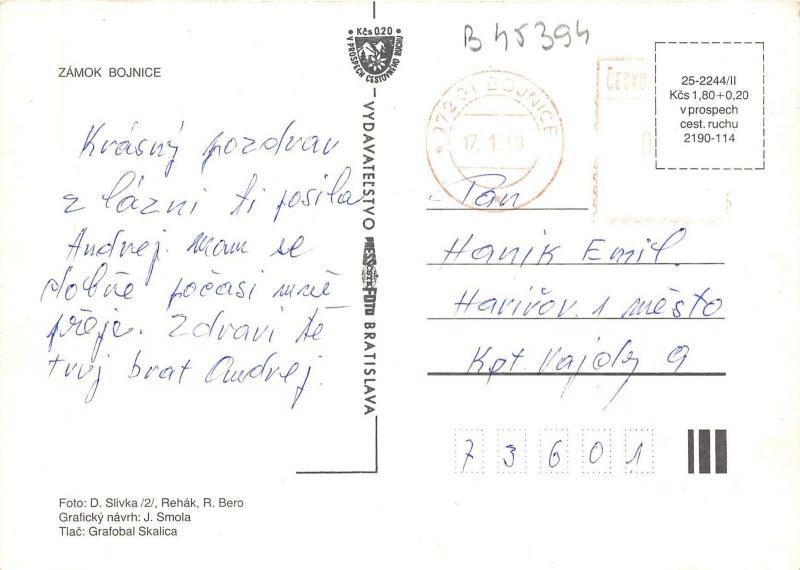 ZÁMOK BOJNICE
Krásný pozdrav
z lázni ti posila
Andrej. mam se
dobře počasi mně
přeje. Zdravi tě
tvuj brat Andrej.
Foto: D. Slivka /2/, Rehák, R. Bero
Grafický návrh: J. Smola
Tlač: Grafobal Skalica
Kčs 0.20
V PROSPECH CESTOVNÉHO RUCHU
VYDAVATEĽSTVO PRESSFOTO BRATISLAVA
B 45394
97231 BOJNICE
17. 1. 90
ČESKO
25-2244/II
Kčs 1,80+0,20
v prospech
cest. ruchu
2190-114
Pan
Hanik Emil.
Havířov 1 město
Kpt. Vajdy 9
73601